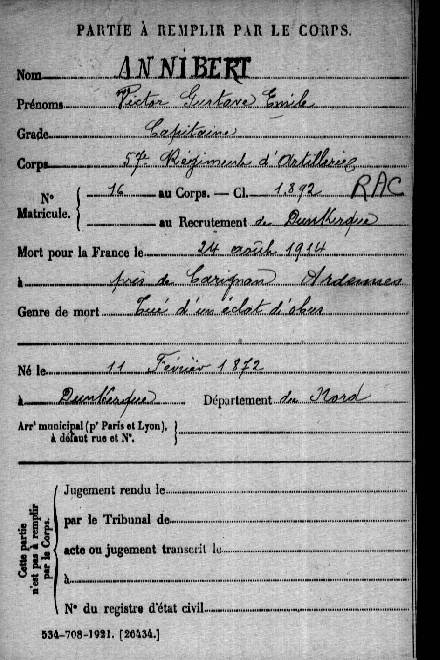 PARTIE À REMPLIR PAR LE CORPS.
Nom ANNIBERT
Prénoms Victor Gustave Emile
Grade Capitaine
Corps 57e Régiment d'Artillerie
N° Matricule. { 16 au Corps. — Cl. 1892 RAC
au Recrutement de Dunkerque
Mort pour la France le 24 août 1914
à près de Carignan Ardennes
Genre de mort Tué d'un éclat d'obus
Né le 11 Février 1872
à Dunkerque Département du Nord
Arrt municipal (pr Paris et Lyon), à défaut rue et N°. }
Cette partie n'est pas à remplir par le Corps. {
Jugement rendu le
par le Tribunal de
acte ou jugement transcrit le
à
N° du registre d'état civil
534-708-1921. [26434.]